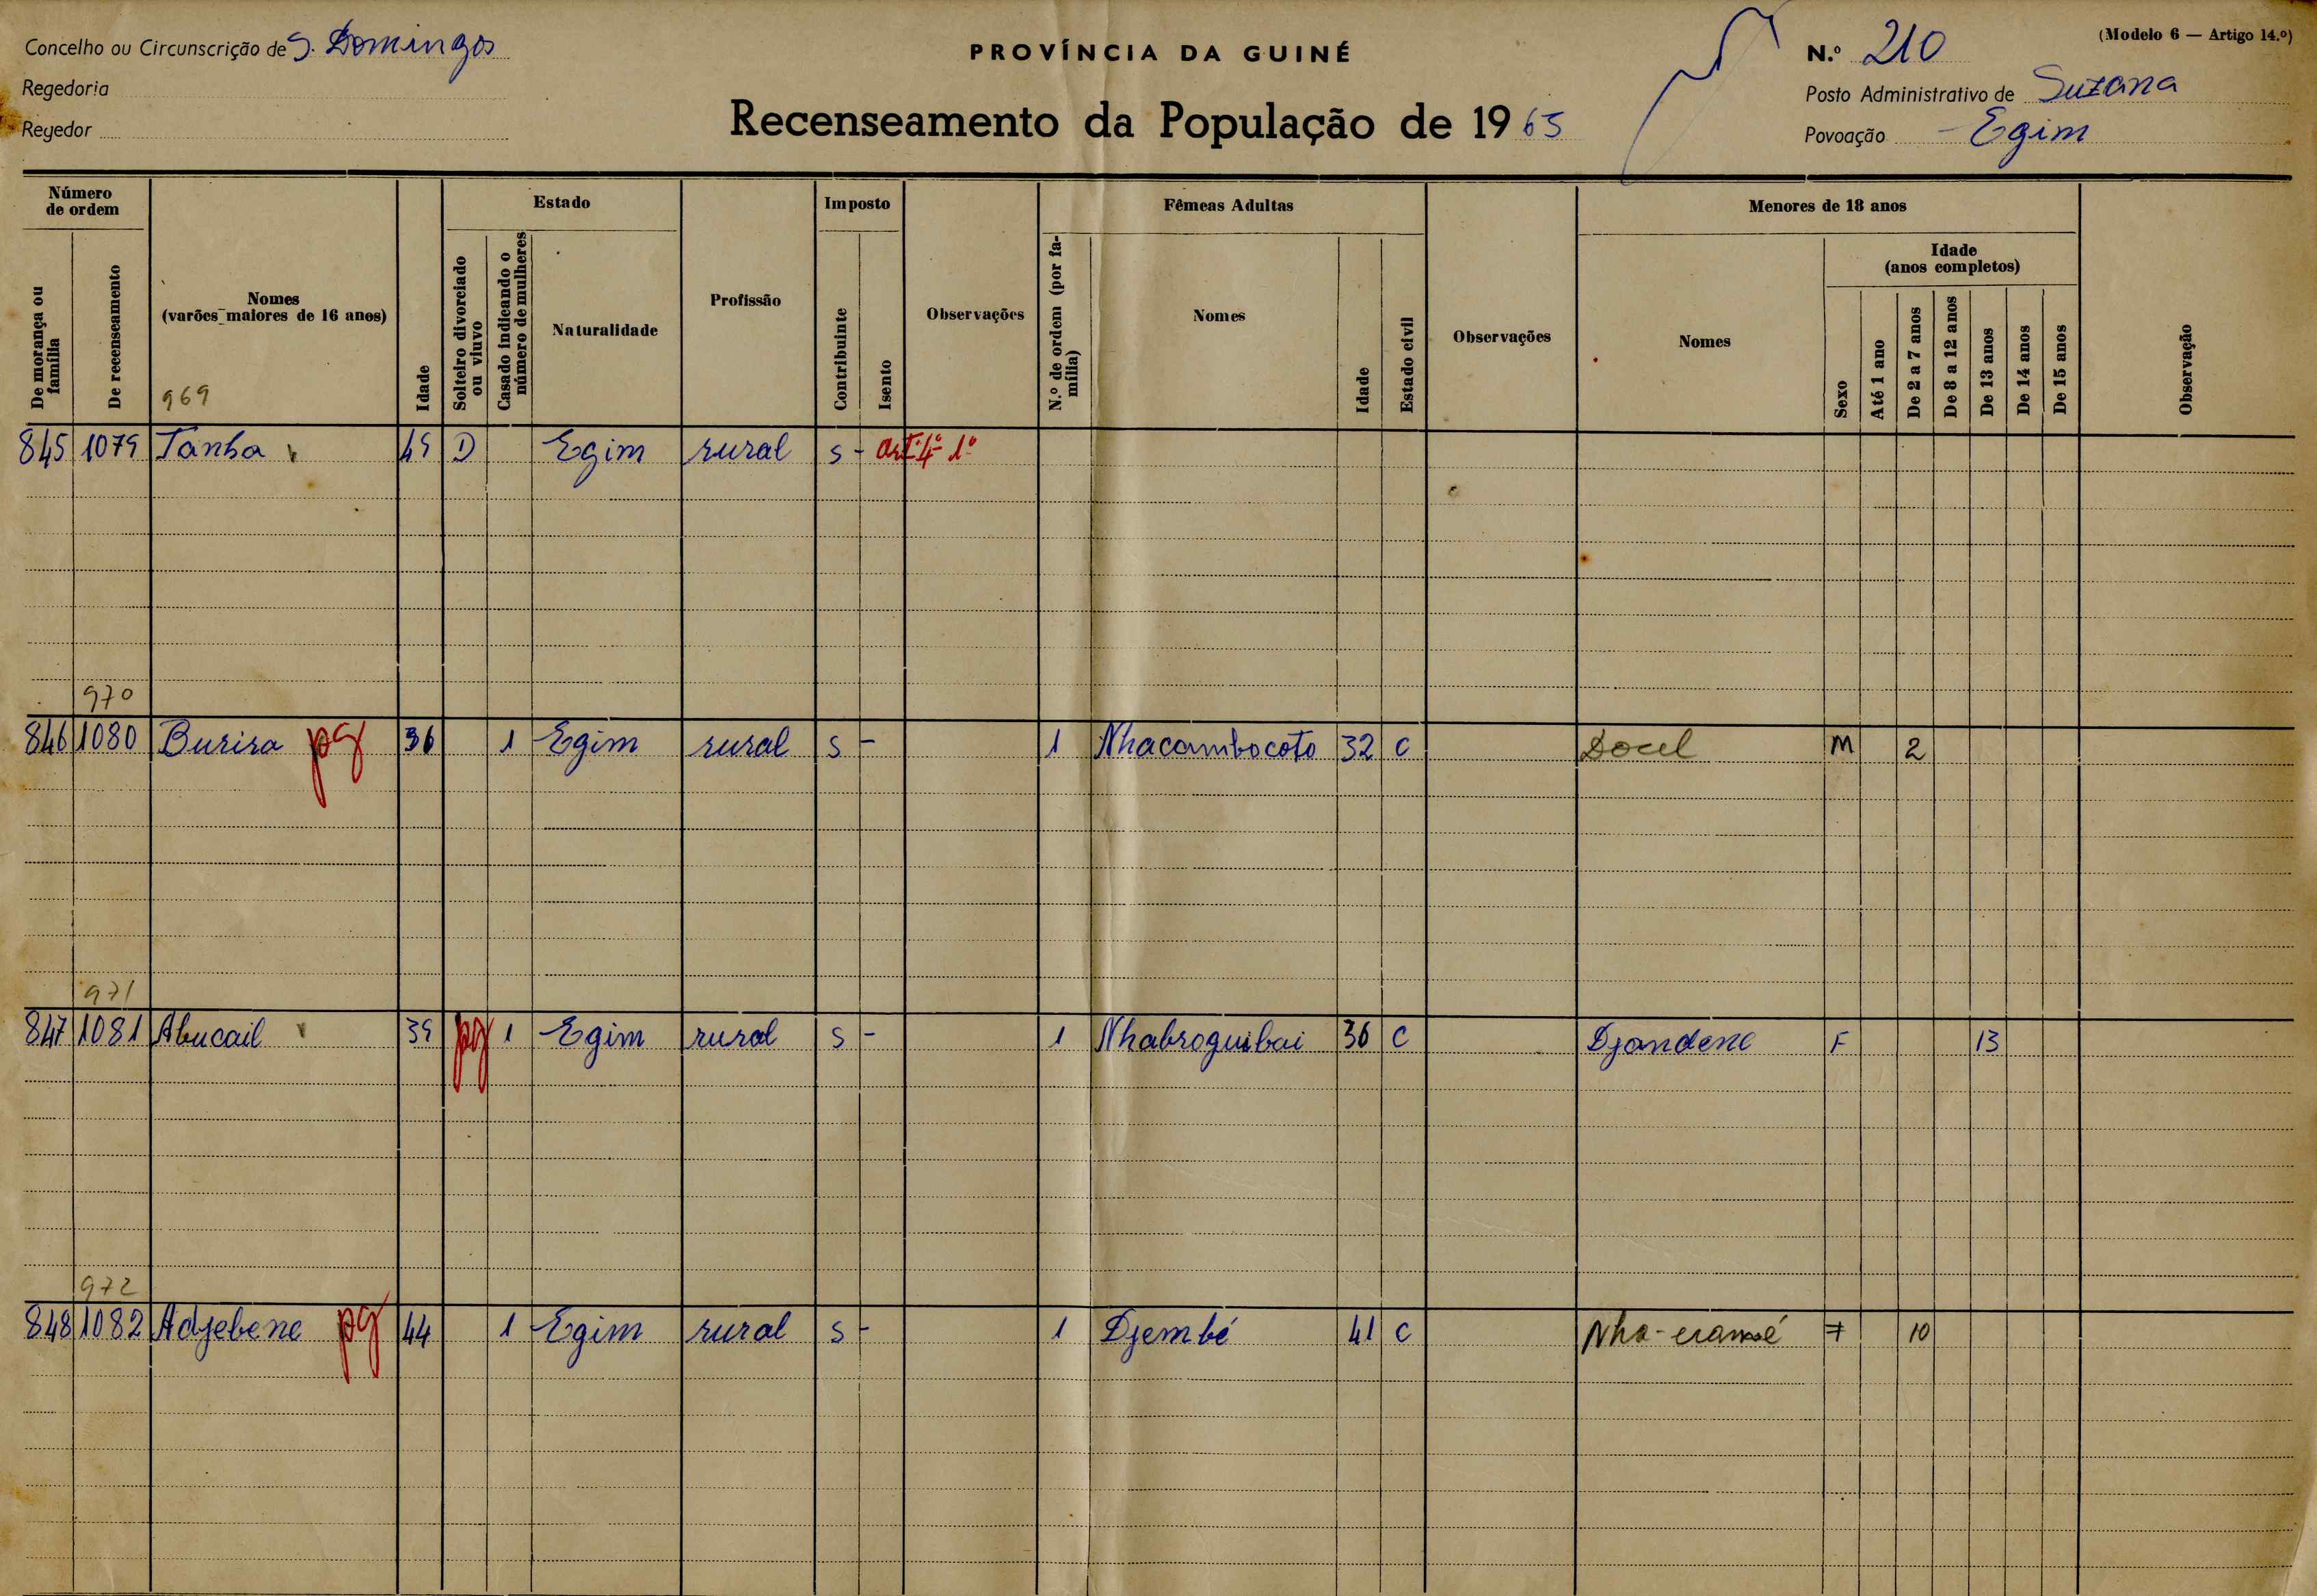 Concelho ou Circunscrição de S. Domingos
Regedoria
Regedor
PROVÍNCIA DA GUINÉ
Recenseamento da População de 1965
(Modelo 6 — Artigo 14.º)
N.º 210
Posto Administrativo de Suzana
Povoação - Egim
Número de ordem
De morança ou família
De recenseamento
Nomes
(varões maiores de 16 anos)
969
Idade
Estado
Solteiro divorciado ou viuvo
Casado indicando o número de mulheres
Naturalidade
Profissão
Imposto
Contribuinte
Isento
Observações
Fêmeas Adultas
N.º de ordem (por família)
Nomes
Idade
Estado civil
Observações
Menores de 18 anos
Nomes
Sexo
Idade
(anos completos)
Até 1 ano
De 2 a 7 anos
De 8 a 12 anos
De 13 anos
De 14 anos
De 15 anos
Observação
845 1079 Tanba D Egim rural s - artº 4º 1º
970
846 1080 Burira pg 36 1 Egim rural s - 1 Nhacambocoto 32 C Docel M 2
971
847 1081 Abucail 39 pg 1 Egim rural s - 1 Nhabroguibai 36 C Djandene F 13
972
848 1082 Adjebene pg 44 1 Egim rural s - 1 Djembé 41 C F 10